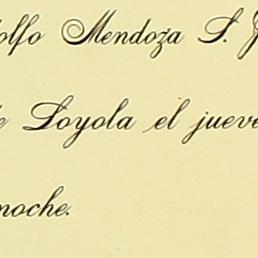 olfo Mendoza S. J
e Loyola el jueve
noche.